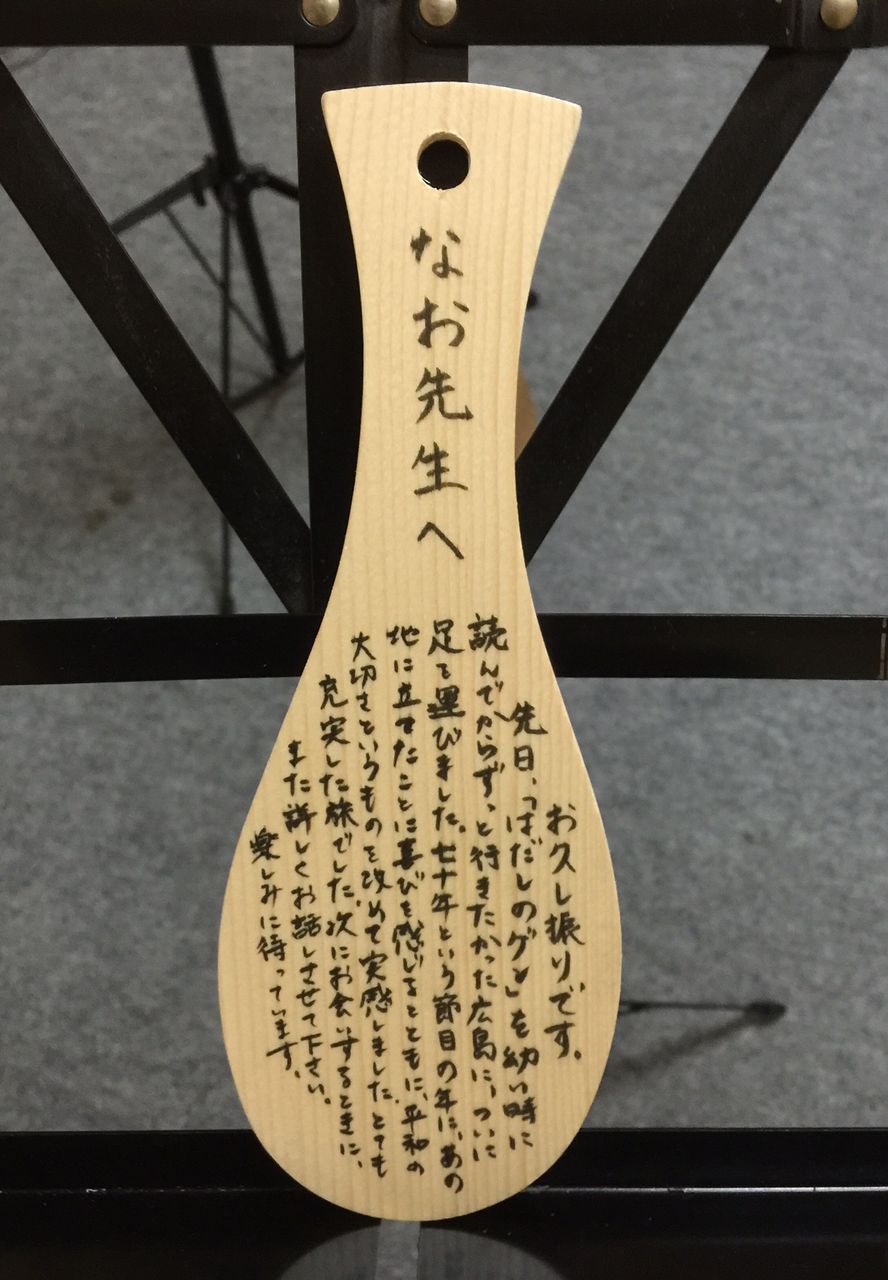 なお先生へ
お久し振りです。
先日、「はだしのゲン」を幼い時に
読んでからずっと行きたかった広島に、ついに
足を運びました。七十年という節目の年に、あの
地に立てたことに喜びを感じるとともに、平和の
大切さというものを改めて実感しました。とても
充実した旅でした。次にお会いするときに、
また詳しくお話しさせて下さい。
楽しみに待っています。